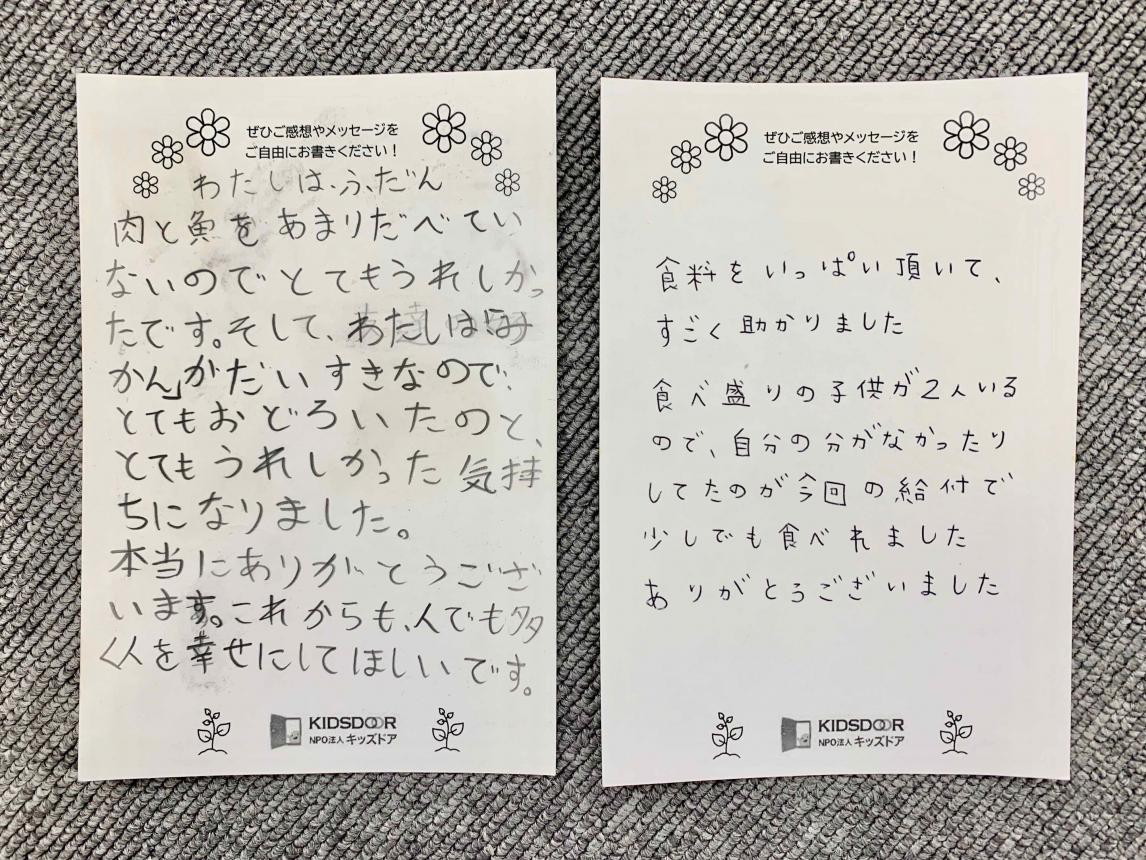 ぜひご感想やメッセージを
ご自由にお書きください！
わたしは、ふだん
肉と魚をあまりだべてい
ないのでとてもうれしかっ
たです。そして、わたしは「み
かん」がだいすきなので、
とてもおどろいたのと、
とてもうれしかった気持
ちになりました。
本当にありがとうござ
います。これからも、人でも多
く人を幸せにしてほしいです。
KIDSDOOR
NPO法人 キッズドア
ぜひご感想やメッセージを
ご自由にお書きください！
食料をいっぱい頂いて、
すごく助かりました
食べ盛りの子供が2人いる
ので、自分の分がなかったり
してたのが今回の給付で
少しでも食べれました
ありがとうございました
KIDSDOOR
NPO法人 キッズドア